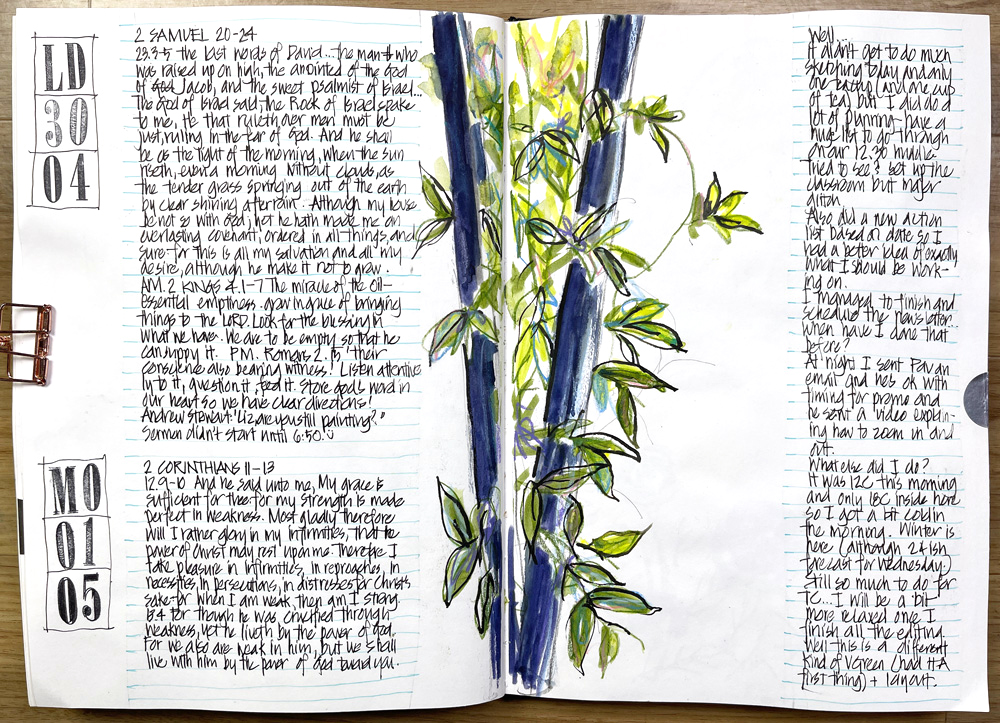 LD
30
04
2 SAMUEL 20-24
23.3-5 the last words of David...the man who
was raised up on high, the anointed of the God
of God Jacob, and the sweet psalmist of Israel...
The God of Israel said, the Rock of Israel spake
to me, He that ruleth over men must be
just, ruling in the fear of God. And he shall
be as the light of the morning, when the sun
riseth, even a morning without clouds, as
the tender grass springing out of the earth
by clear shining after rain. Although my house
be not so with God; yet he hath made me an
everlasting covenant, ordered in all things, and
sure: for this is all my salvation and all my
desire, although he make it not to grow.
AM. 2 KINGS 4.1-7 The miracle of the Oil-
essential emptiness. grow in grace of bringing
things to the LORD. Look for the blessing in
what we have. We are to be empty so that he
can supply it. P.M. Romans 2.15 'their
conscience also bearing witness'! Listen attentive
ly to it, question it, feed it. Store God's word in
our heart so we have clear directions!
Andrew Stewart: "Liz are you still painting?"
Sermon didn't start until 6:50!
MO
01
05
2 CORINTHIANS 11-13
12.9-10 And he said unto me, My grace is
sufficient for thee: for my strength is made
perfect in weakness. Most gladly therefore
will I rather glory in my infirmities, that the
power of Christ may rest upon me. Therefore I
take pleasure in infirmities, in reproaches, in
necessities, in persecutions, in distresses for Christs
sake: for when I am weak, then am I strong.
13.4 for though he was crucified through
weakness, yet he liveth by the power of God.
for we also are weak in him, but we shall
live with him by the power of God toward you.
Well...
it didn't get to do much
sketching today and only
one teacup (and one cup
of tea) but I did do a
lot of planning - have a
huge list to go through
on our 12.30 huddle.
Tried to see & set up the
classroom but major
glitch.
Also did a new action
list based on date so I
had a better idea of exactly
what I should be work-
ing on.
I managed to finish and
schedule the newsletter...
when have I done that
before?
At night I sent Pav an
email and he's ok with
timing for promo and
he sent a video explain-
ing how to zoom in and
out.
What else did I do?
It was 12C this morning
and only 18C inside here
so I got a bit cold in
the morning. Winter is
here (although 24ish
forecast for Wednesday.)
Still so much to do for
TC... I will be a bit
more relaxed once I
finish all the editing.
Well this is a different
kind of VGreen (had HA
first thing) + layout.